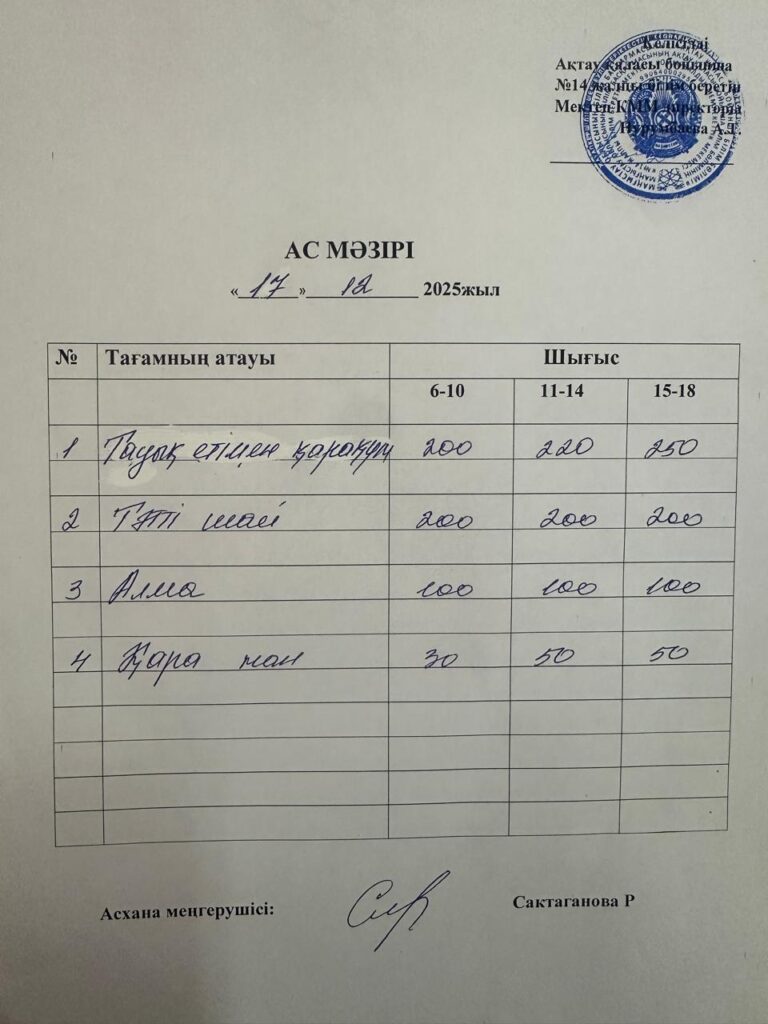 Келісілді
Ақтау қаласы бойынша
№14 жалпы білім беретін
Мектеп КММ директоры
Нурумбаева А.Т.
АС МӘЗІРІ
« 17 » 12 2025жыл
№ Тағамның атауы Шығыс
6-10 11-14 15-18
1 Тауық етімен қарақұм 200 220 250
2 Тәтті шай 200 200 200
3 Алма 100 100 100
4 Қара нан 30 50 50
Асхана меңгерушісі: Сактаганова Р